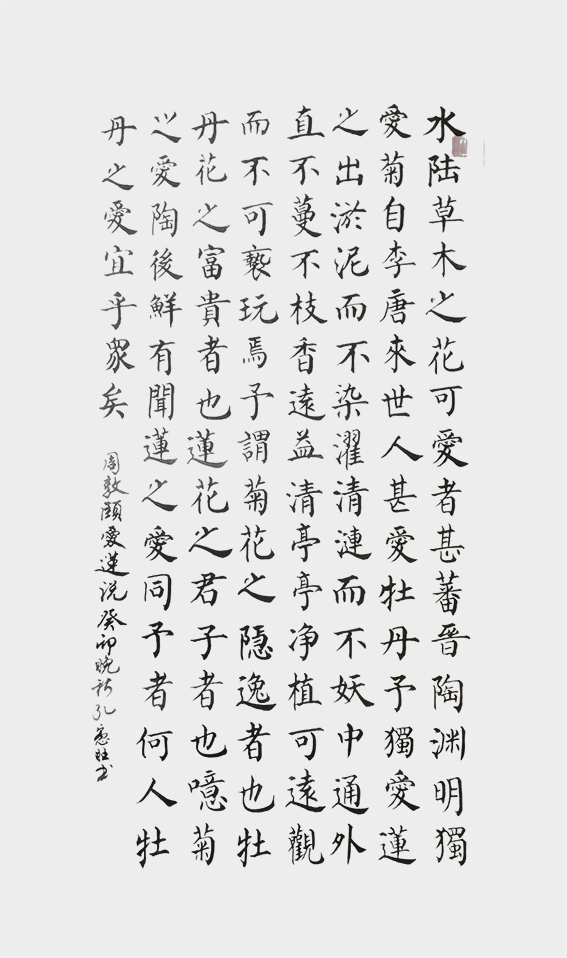 水陆草木之花可愛者甚蕃晋陶渊明獨
愛菊自李唐來世人甚愛牡丹予獨愛蓮
之出淤泥而不染濯清漣而不妖中通外
直不蔓不枝香遠益清亭亭净植可遠觀
而不可褻玩焉予謂菊花之隱逸者也牡
丹花之富貴者也蓮花之君子者也噫菊
之愛陶後鮮有聞蓮之愛同予者何人牡
丹之愛宜乎眾矣
周敦頤愛蓮说癸卯晚秋孔憲旺书